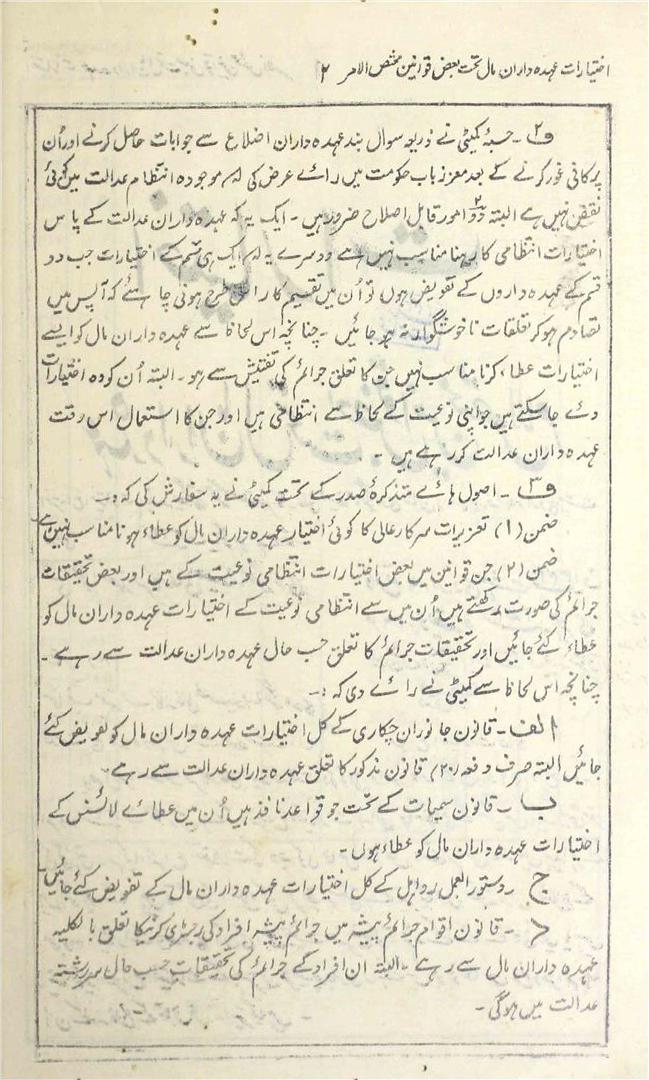 اختیارات عہدہ داران مال تحت بعض قوانین مختص الامر ۲
ف۲ ۔ حسبہٗ کمیٹی نے ذریعہ سوال بند عہدہ داران اضلاع سے جوابات حاصل کرنے اور اُن
پر کافی غور کرنے کے بعد معزز باب حکومت میں رائے عرض کی کہ موجودہ انتظام عدالت میں کوئی
نقص نہیں ہے البتہ دو امور قابل اصلاح ضرور ہیں ۔ ایک یہ کہ عہدہ داران عدالت کے پاس
اختیارات انتظامی کا رہنا مناسب نہیں ہے دوسرے یہ کہ ایک ہی قسم کے اختیارات جب دو
قسم کے عہدہ داروں کے تفویض ہوں تو اُن میں تقسیم کار اس طرح ہونی چاہئے کہ آپس میں
تصادم ہو کر تعلقات ناخوشگوار نہ ہو جائیں ۔ چنانچہ اس لحاظ سے عہدہ داران مال کو ایسے
اختیارات عطاء کرنا مناسب نہیں جن کا تعلق جرائم کی تفتیش سے ہو ۔ البتہ اُن کو وہ اختیارات
دئے جا سکتے ہیں جو اپنی نوعیت کے لحاظ سے انتظامی ہیں اور جن کا استعمال اس وقت
عہدہ داران عدالت کر رہے ہیں ۔
ف۳ ۔ اصول ہائے متذکرۂ صدر کے تحت کمیٹی نے یہ سفارش کی کہ :۔
ضمن (۱) تعزیرات سرکار عالی کا کوئی اختیار عہدہ داران مال کو عطاء ہونا مناسب نہیں ہے
ضمن (۲) جن قوانین میں بعض اختیارات انتظامی نوعیت کے ہیں اور بعض تحقیقات
جرائم کی صورت رکھتے ہیں اُن میں سے انتظامی نوعیت کے اختیارات عہدہ داران مال کو
عطاء کئے جائیں اور تحقیقات جرائم کا تعلق حسب حال عہدہ داران عدالت سے رہے ۔
چنانچہ اس لحاظ سے کمیٹی نے رائے دی کہ :۔
الف ۔ قانون جانوران چکاری کے کل اختیارات عہدہ داران مال کو تفویض کئے
جائیں البتہ صرف دفعہ (۲۰) قانون مذکور کا تعلق عہدہ داران عدالت سے رہے ۔
ب ۔ قانون سمیات کے تحت جو قواعد نافذ ہیں اُن میں عطائے لائسنس کے
اختیارات عہدہ داران مال کو عطاء ہوں ۔
ج دستور العمل روہل کے کل اختیارات عہدہ داران مال کے تفویض کئے جائیں
د ۔ قانون اقوام جرائم پیشہ میں جرائم پیشہ افراد کی رجسٹری کرنیکا تعلق بالکلیہ
عہدہ داران مال سے رہے ۔ البتہ ان افراد کے جرائم کی تحقیقات حسب حال سررشتہ
عدالت میں ہوگی ۔